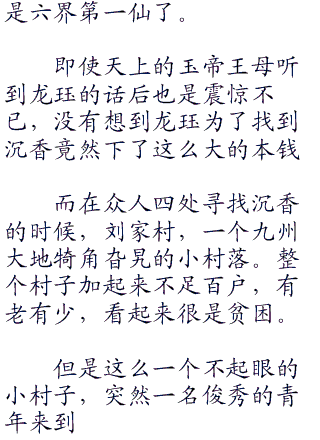 是六界第一仙了。
即使天上的玉帝王母听
到龙珏的话后也是震惊不
已，没有想到龙珏为了找到
沉香竟然下了这么大的本钱
而在众人四处寻找沉香
的时候，刘家村，一个九州
大地犄角旮旯的小村落。整
个村子加起来不足百户，有
老有少，看起来很是贫困。
但是这么一个不起眼的
小村子，突然一名俊秀的青
年来到